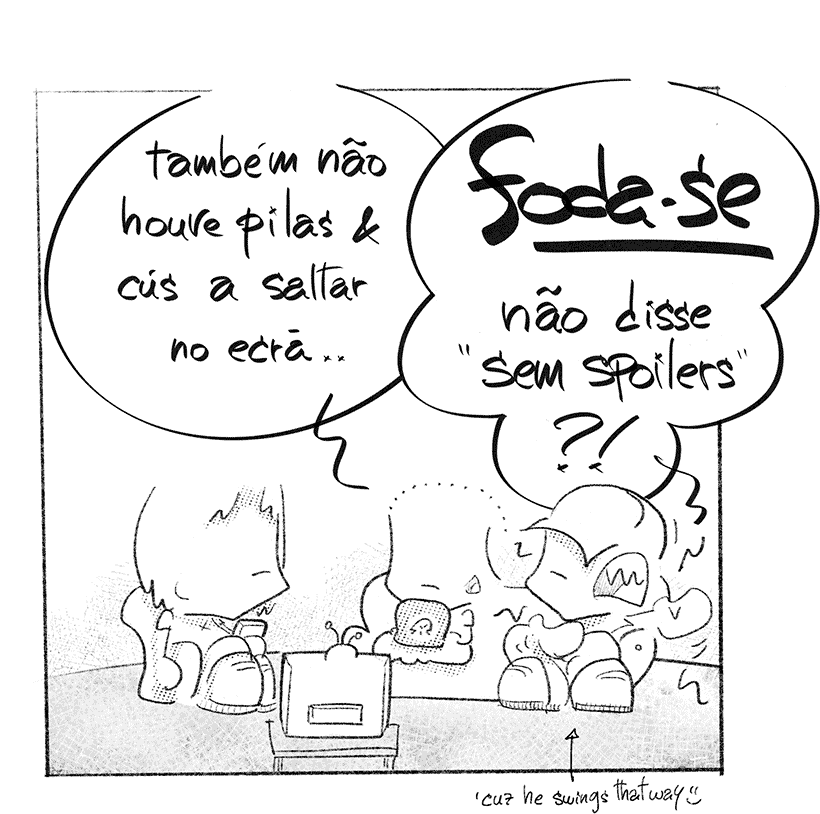 também não
houve pilas &
cús a saltar
no ecrã..
foda-se
não disse
"sem spoilers"
?!
'cuz he swings that way